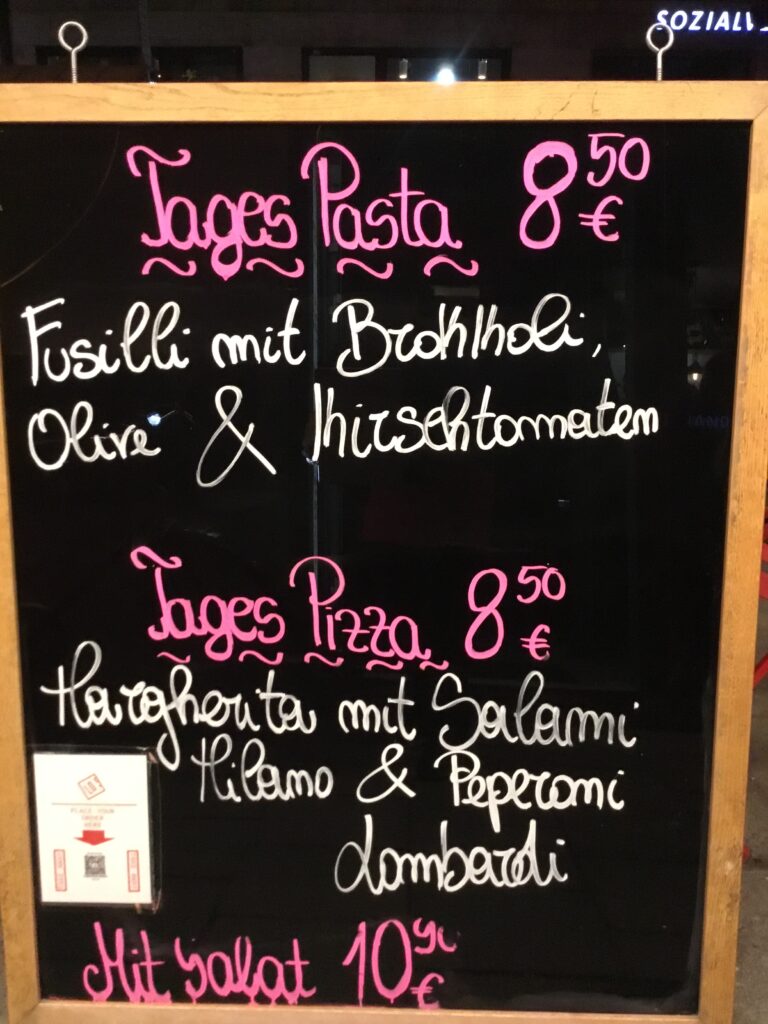 SOZIALV
Tages Pasta 8 50 €
Fusilli mit Brokkoli,
Olive & Kirschtomaten
Tages Pizza 8 50 €
Margherita mit Salami
Milano & Peperoni
Lombardi
PLACE YOUR
ORDER
HERE
Mit Salat 10 90 €